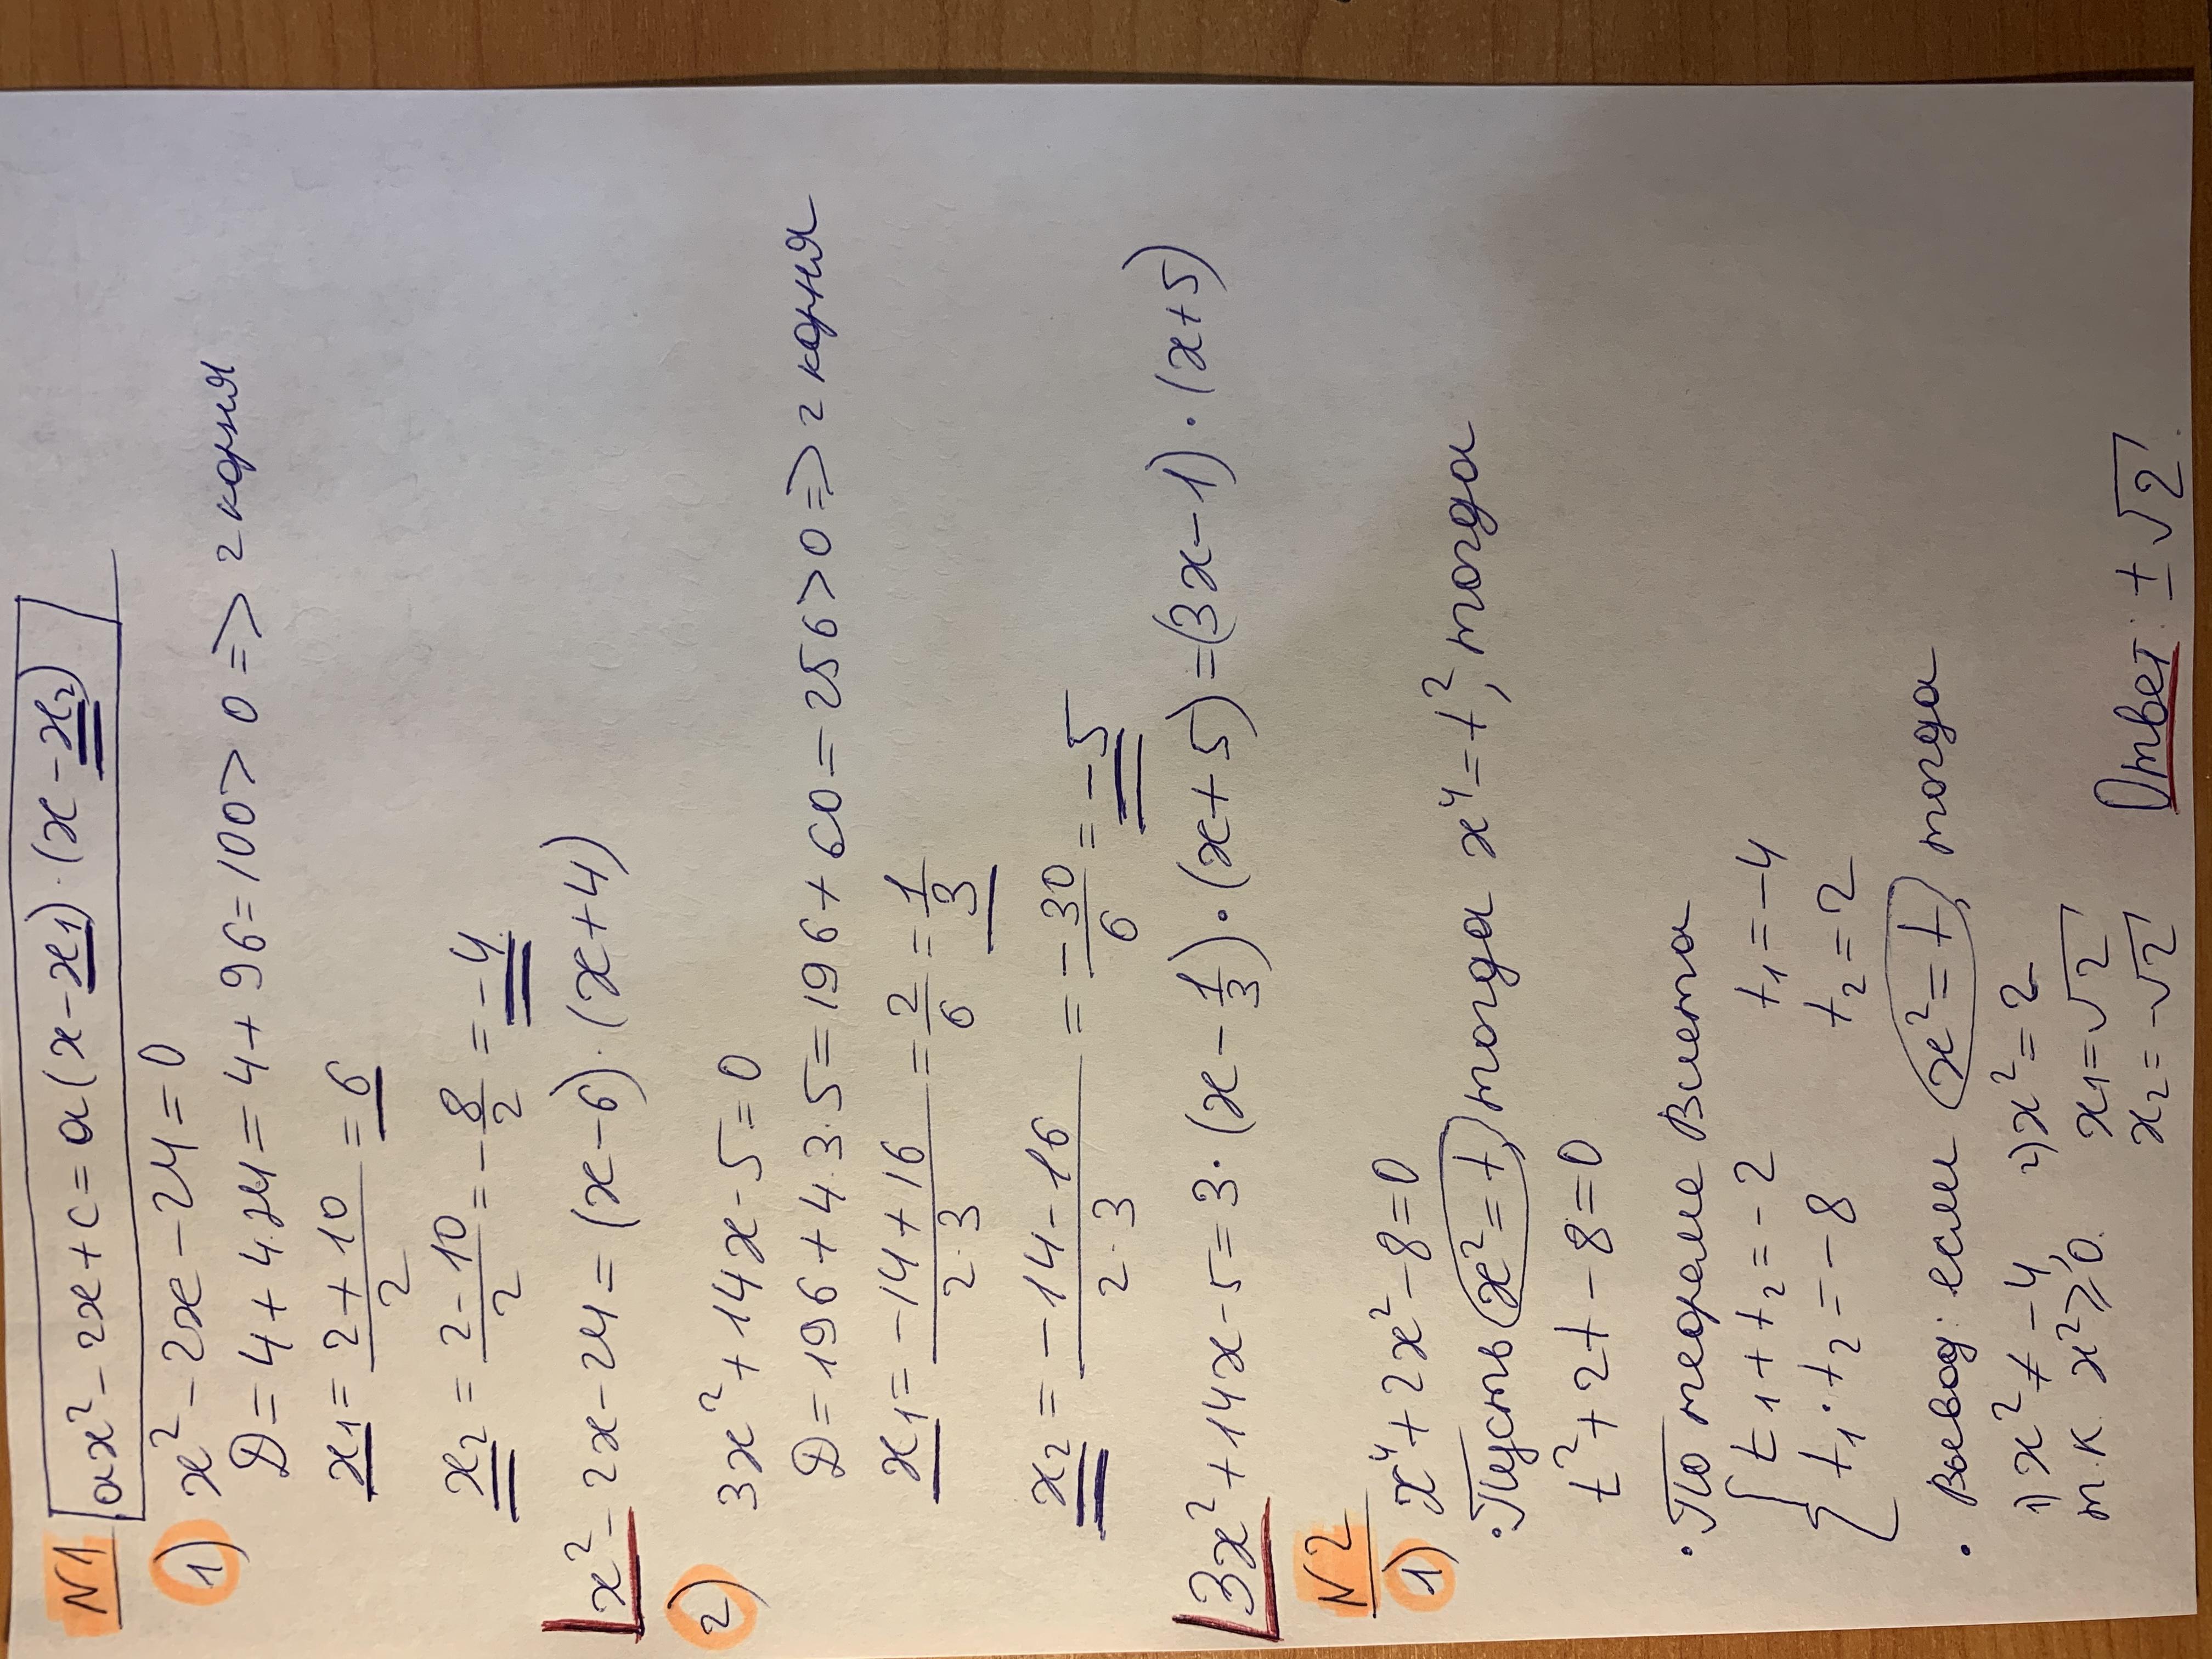 N1 ax² - 2x + c = a(x - x₁)·(x - x₂)
1) x² - 2x - 24 = 0
D = 4 + 4·24 = 4 + 96 = 100 > 0 => 2 корня
x₁ = (2 + 10)/2 = 6
x₂ = (2 - 10)/2 = -8/2 = -4
x² - 2x - 24 = (x - 6)·(x + 4)
2) 3x² + 14x - 5 = 0
D = 196 + 4·3·5 = 196 + 60 = 256 > 0 => 2 корня
x₁ = (-14 + 16)/(2·3) = 2/6 = 1/3
x₂ = (-14 - 16)/(2·3) = -30/6 = -5
3x² + 14x - 5 = 3·(x - 1/3)·(x + 5) = (3x - 1)·(x + 5)
N2
1) x⁴ + 2x² - 8 = 0
·Пусть x² = t, тогда x⁴ = t², тогда
t² + 2t - 8 = 0
·По теореме Виета
{ t₁ + t₂ = -2 t₁ = -4
t₁·t₂ = -8 t₂ = 2
· Вывод: если x² = t, тогда
1) x² ≠ -4, 2) x² = 2
т.к. x² ⩾ 0. x₁ = √2
x₂ = -√2
Ответ: ±√2.